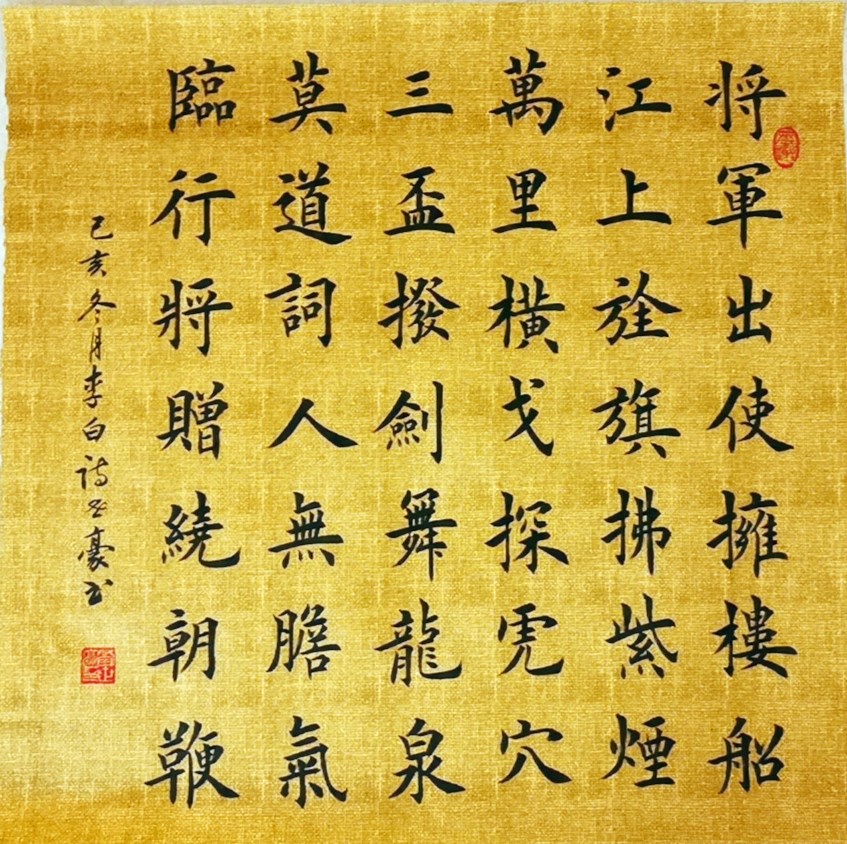 将軍出使擁樓船
江上旌旗拂紫煙
萬里橫戈探虎穴
三盃撥劍舞龍泉
莫道詞人無膽氣
臨行將贈繞朝鞭
己亥冬月李白詩豪书